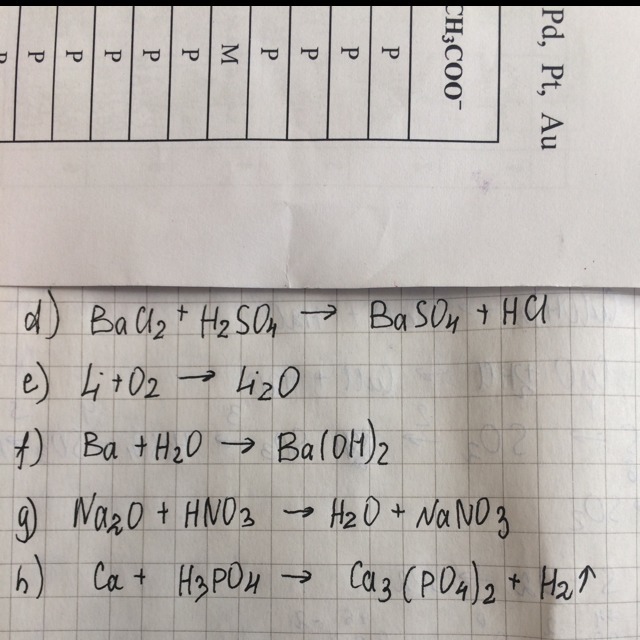 CH₃COO⁻
Pd, Pt, Au
P P P P P P M P P P P
d) BaCl₂ + H₂SO₄ → BaSO₄ + HCl
e) Li + O₂ → Li₂O
f) Ba + H₂O → Ba(OH)₂
g) Na₂O + HNO₃ → H₂O + NaNO₃
h) Ca + H₃PO₄ → Ca₃(PO₄)₂ + H₂↑